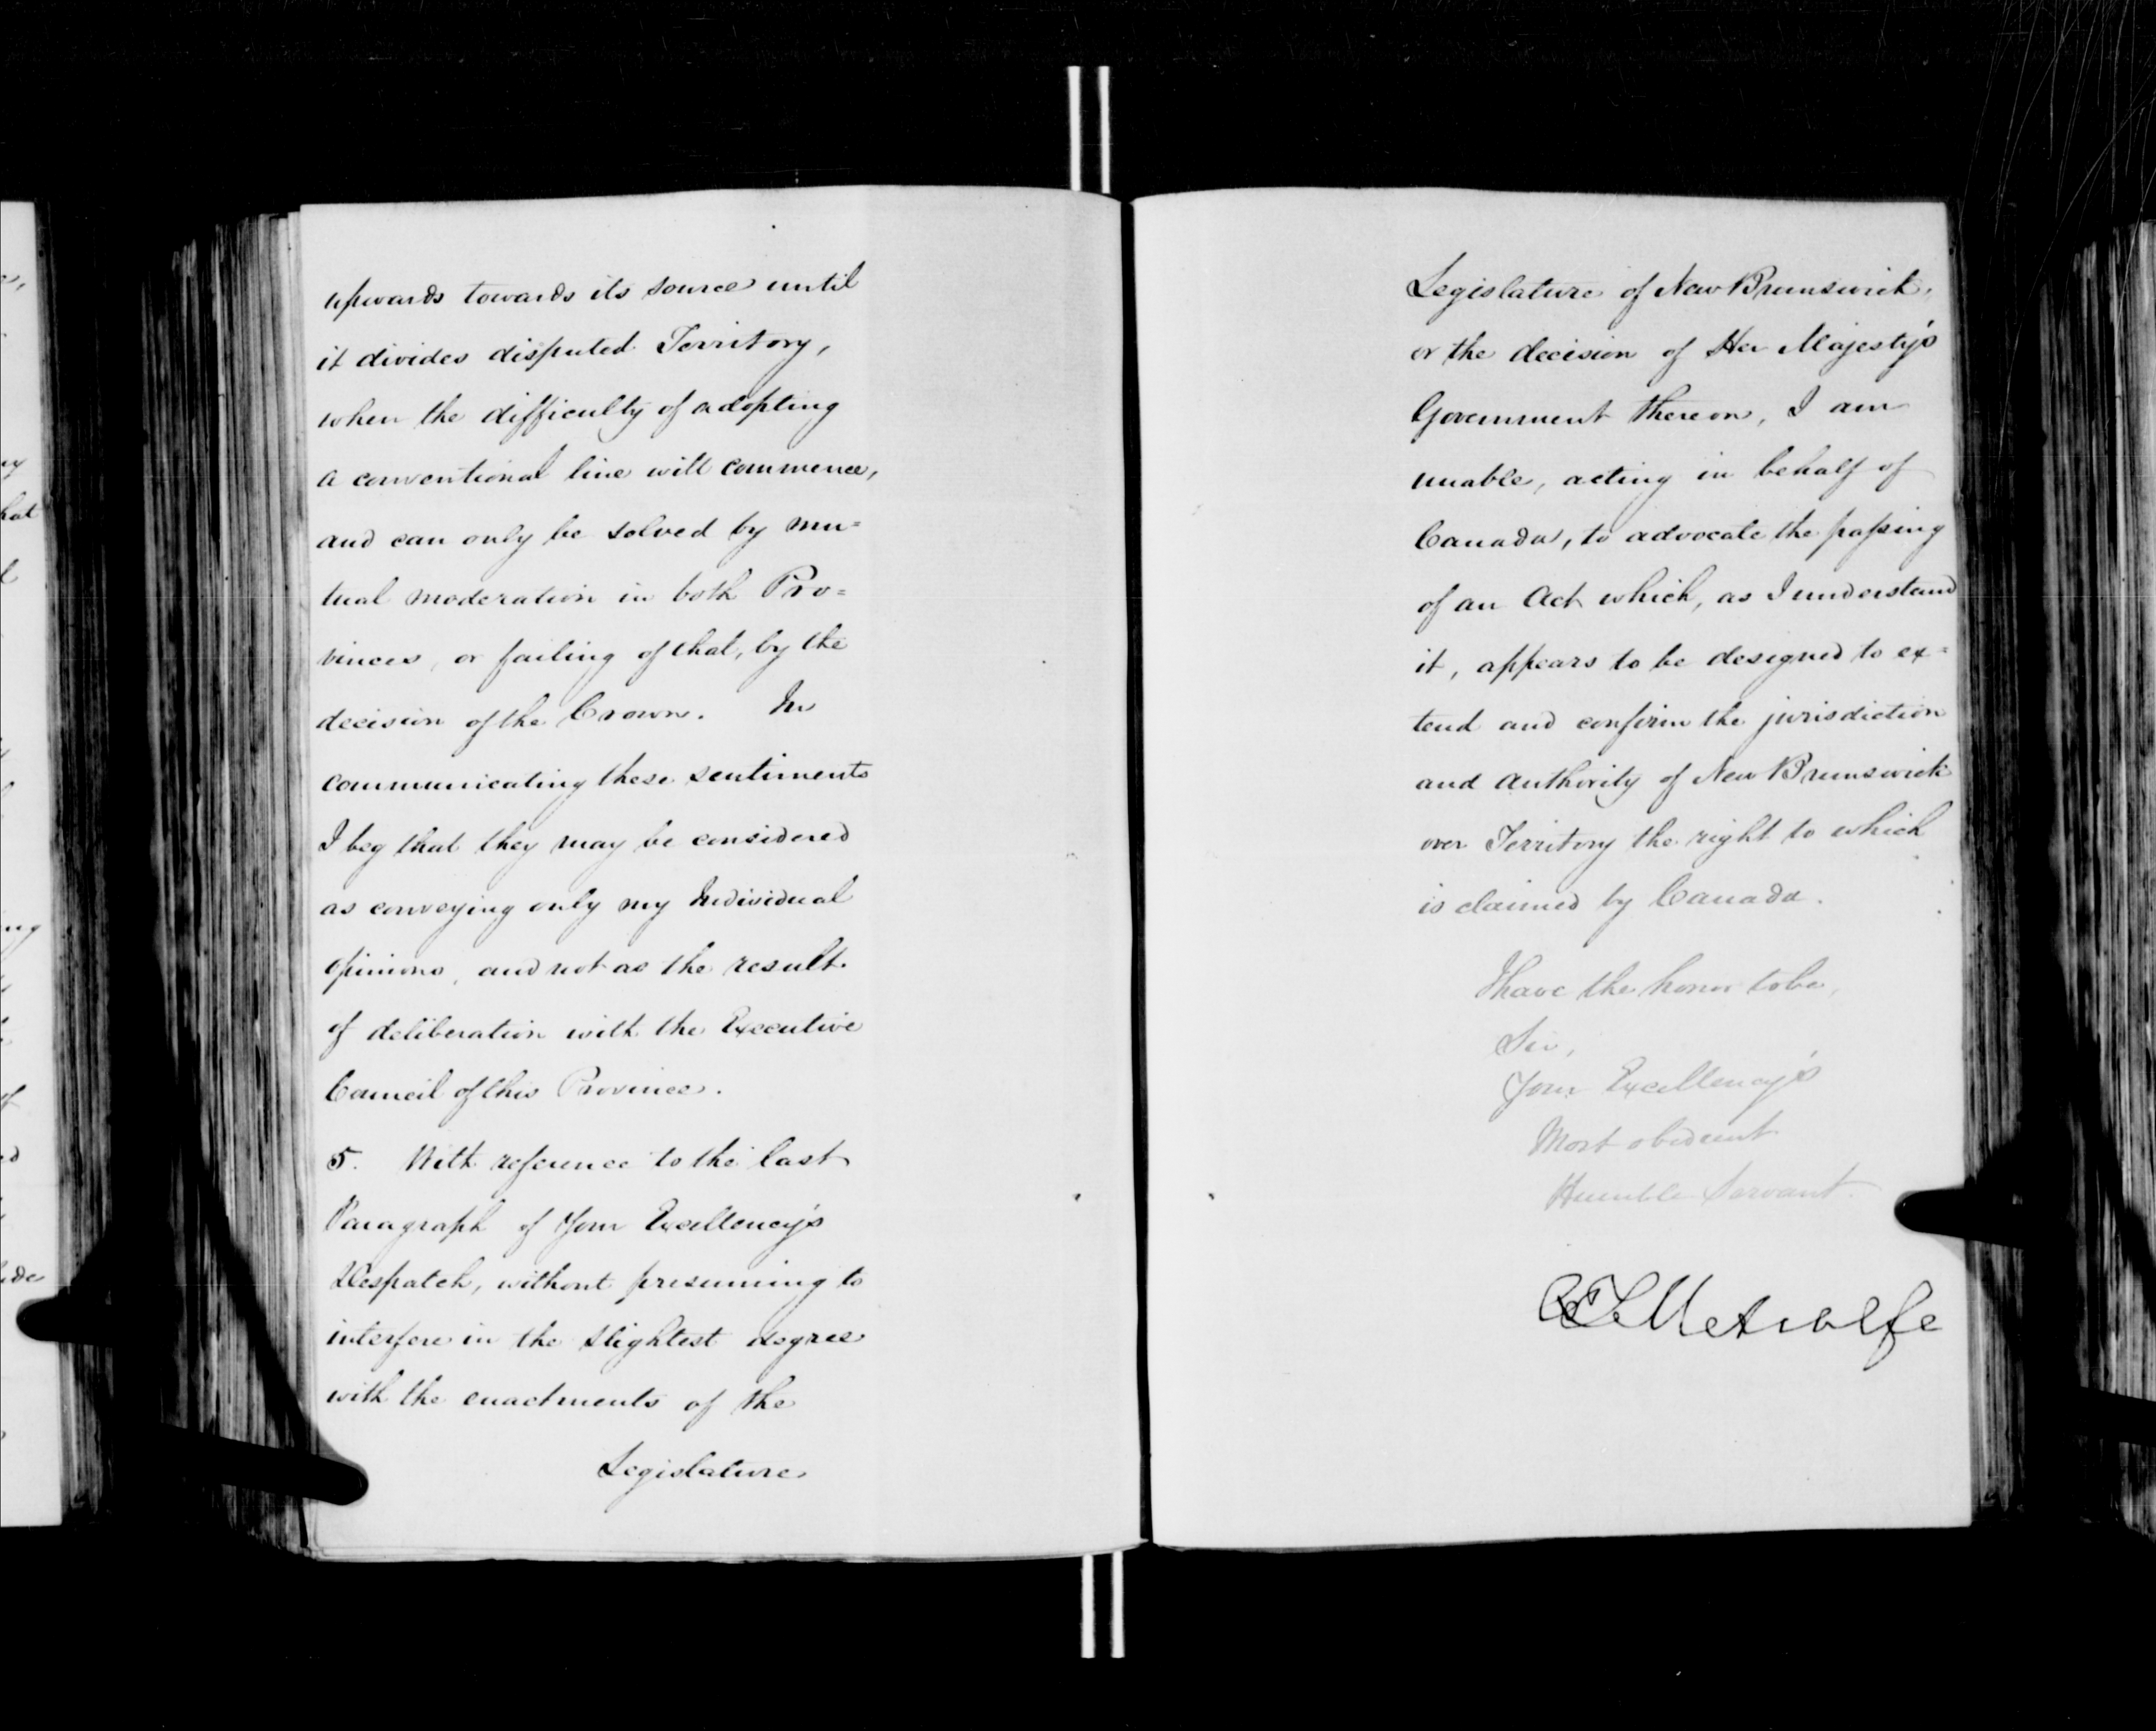 upwards towards its source until
it divides disputed Territory,
when the difficulty of adopting
a conventional line will commence,
and can only be solved by mu=
tual moderation in both Pro=
vinces, or failing of that, by the
decision of the Crown. In
communicating these sentiments
I beg that they may be considered
as conveying only my Individual
opinions, and not as the result
of deliberation with the Executive
Council of this Province.
5. With reference to the last
Paragraph of Your Excellency's
Despatch, without presuming to
interfere in the slightest degree
with the enactments of the
Legislature
Legislature of New Brunswick,
or the decision of Her Majesty's
Government thereon, I am
unable, acting in behalf of
Canada, to advocate the passing
of an Act which, as I understand
it, appears to be designed to ex=
tend and confirm the jurisdiction
and authority of New Brunswick
over Territory the right to which
is claimed by Canada.
I have the honor to be,
Sir,
Your Excellency's
Most obedient
Humble Servant.
Metcalfe